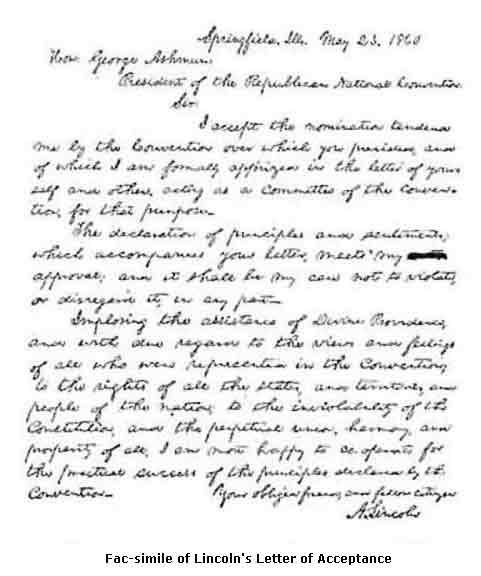 Springfield, Ills. May 23. 1860
Hon. George Ashmun,
President of the Republican National Convention.
Sir:
I accept the nomination tendered
me by the Convention over which you presided, and
of which I am formally apprized in the letter of your-
self and others, acting as a Committee of the Conven-
tion, for that purpose.
The declaration of principles and sentiments,
which accompanies your letter, meets my
approval; and it shall be my care not to violate,
or disregard it, in any part.
Imploring the assistance of Divine Providence,
and with due regard to the views and feelings
of all who were represented in the Convention;
to the rights of all the states, and territories, and
people of the nation; to the inviolability of the
Constitution, and the perpetual union, harmony, and
prosperity of all, I am now happy to co-operate for
the practical success of the principles declared by the
Convention. Your obliged friend, and fellow citizen
A. Lincoln
Fac-simile of Lincoln's Letter of Acceptance